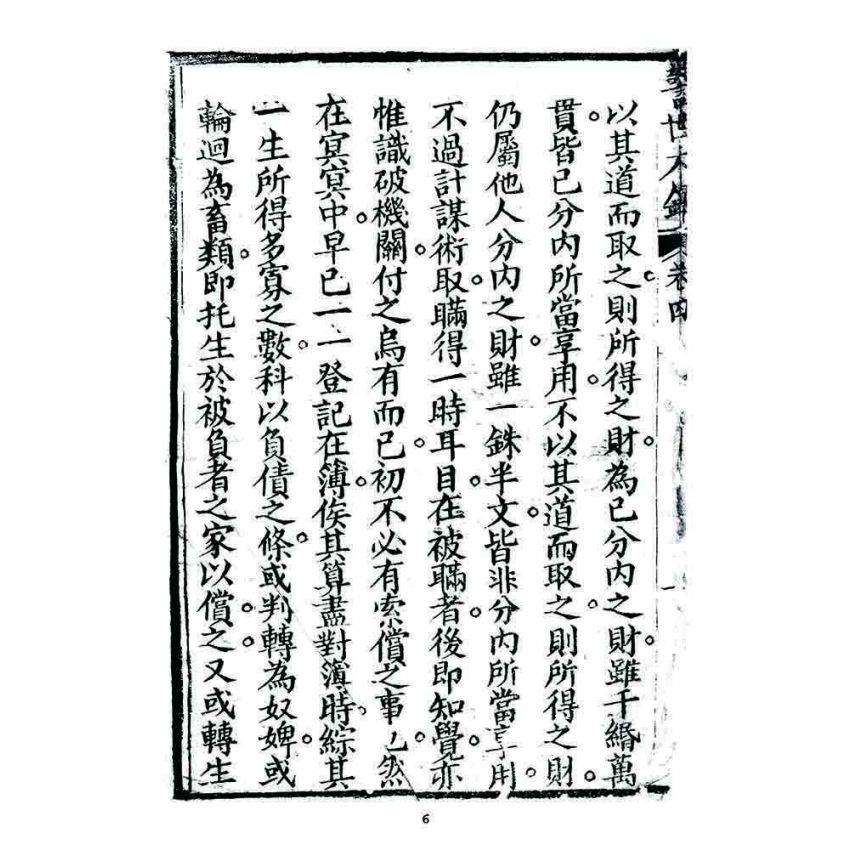 警世木鐸 卷四
以其道而取之則所得之財為己分內之財雖千緡萬
貫皆己分內所當享用不以其道而取之則所得之財
仍屬他人分內之財雖一銖半文皆非分內所當享用
不過計謀術取瞞得一時耳目在被瞞者後即知覺亦
惟識破機關付之烏有而已初不必有索償之事然
在冥冥中早已一一登記在簿俟其算盡對簿時綜其
一生所得多寡之數科以負債之條或判轉為奴婢或
輪迴為畜類即托生於被負者之家以償之又或轉生
6